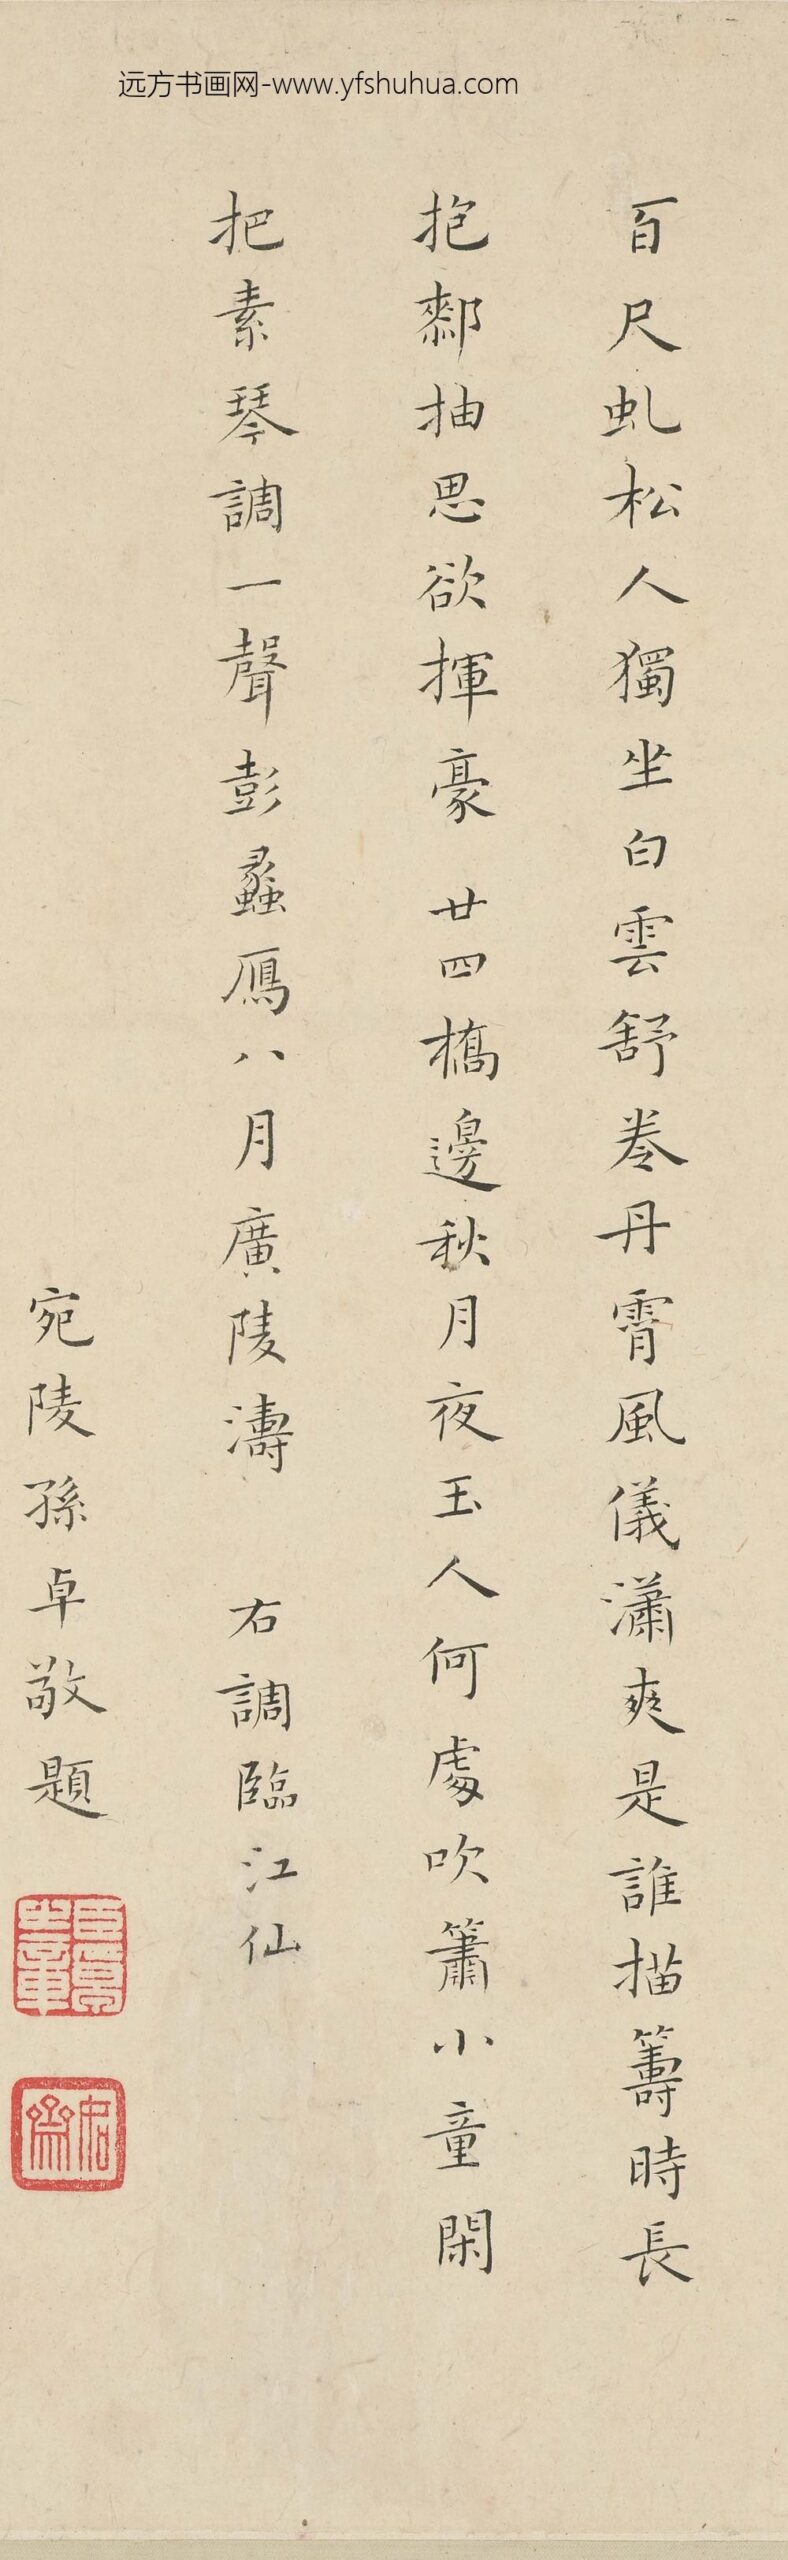 远方书画网-www.yfshuhua.com
百尺虬松人獨坐白雲舒卷丹霄風儀瀟爽是誰描籌時長
抱䣛抽思欲揮豪 廿四橋邊秋月夜玉人何處吹簫小童閑
把素琴調一聲彭蠡鴈八月廣陵濤 右調臨江仙
宛陵孫卓敬題